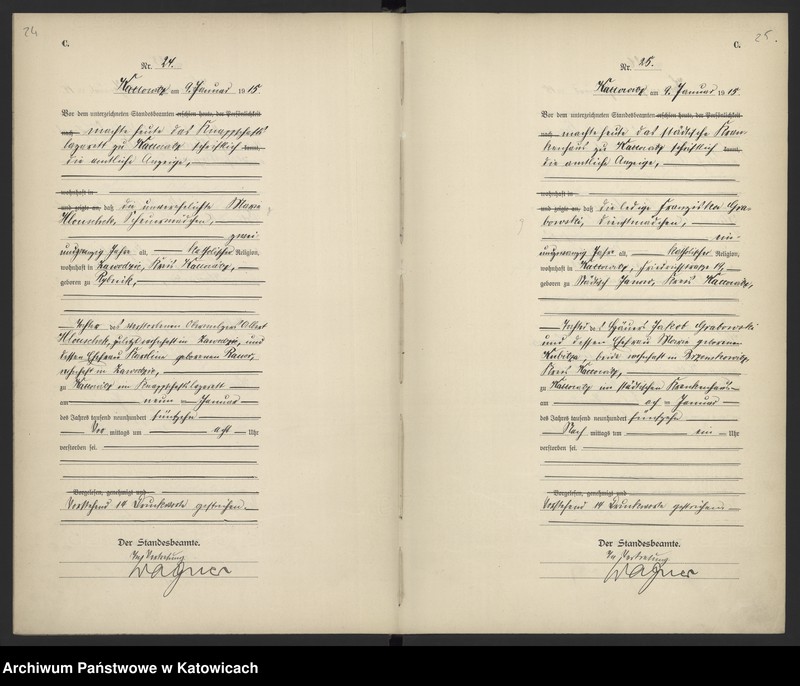 24
C.
Nr. 24.
Kattowitz am 9. Januar 1915.
Vor dem unterzeichneten Standesbeamten erschien heute, der Persönlichkeit
nach machte heute das Knappschafts
lazarett zu Kattowitz schriftlich kannt,
die amtliche Anzeige,
wohnhaft in
und zeigte an, daß die unverehelichte Marie
zwei
undzwanzig Jahre alt, katholischer Religion,
wohnhaft in Zawodzie, Kreis Kattowitz,
geboren zu Rybnik,
Tochter des verstorbenen Albert
zuletzt wohnhaft in Zawodzie, und
dessen Ehefrau geborenen
wohnhaft in Zawodzie,
zu Kattowitz im Knappschaftslazarett
am neun Januar
des Jahres tausend neunhundert fünfzehn
Vor mittags um acht Uhr
verstorben sei.
Vorgelesen, genehmigt und
Vorstehend 14 Druckworte gestrichen.
Der Standesbeamte.
In Vertretung
Wagner
25.
C.
Nr. 25.
Kattowitz am 9. Januar 1915.
Vor dem unterzeichneten Standesbeamten erschien heute, der Persönlichkeit
nach machte heute das städtische Kran-
kenhaus zu Kattowitz schriftlich kannt,
die amtliche Anzeige,
wohnhaft in
und zeigte an, daß die ledige Franziska Gra-
bowski, Dienstmädchen,
ein-
undzwanzig Jahre alt, katholischer Religion,
wohnhaft in Kattowitz, Friedrichstrasse
geboren zu Städtisch Janow, Kreis Kattowitz,
Tochter des Häuers Jakob Grabowski
und dessen Ehefrau Marie geborenen
beide wohnhaft in
Kreis Kattowitz,
zu Kattowitz im städtischen Krankenhaus
am acht Januar
des Jahres tausend neunhundert fünfzehn
Nach mittags um ein Uhr
verstorben sei.
Vorgelesen, genehmigt und
Vorstehend 14 Druckworte gestrichen
Der Standesbeamte.
In Vertretung
Wagner
Archiwum Państwowe w Katowicach